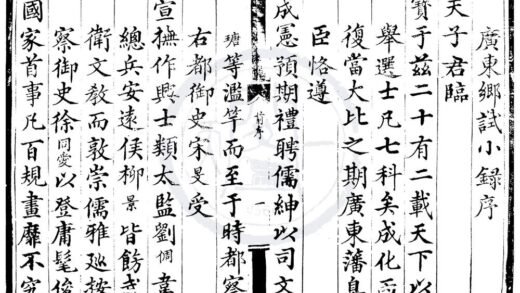 廣東鄉試小録序
天子君臨
寶于兹二十有二載天下以
舉選士凡七科矣成化
復當大比之期廣東藩
臣恪遵
成憲預期禮聘儒紳以司文
前序 一
瑭等濫竽而至于時都察
右都御史宋旻受
宣撫作興士類太監劉倜韋
總兵安遠侯柳景皆飭
衛文敎而敦崇儒雅廵按
察御史徐同愛以登庸髦俊
國家首事凡百規畫靡不究